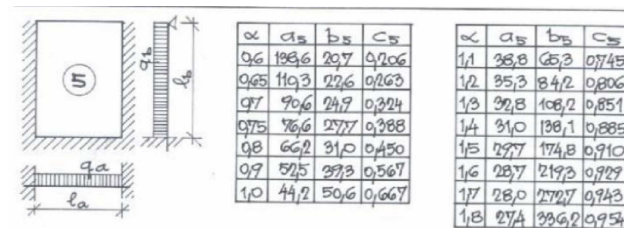 5
q_b
l_b
q_a
l_a
α a5 b5 c5
0,6 138,6 20,7 0,206
0,65 110,3 22,6 0,263
0,7 90,6 24,9 0,324
0,75 76,6 27,7 0,388
0,8 66,2 31,0 0,450
0,9 52,5 39,3 0,567
1,0 44,2 50,6 0,667
α a5 b5 c5
1,1 38,8 65,3 0,745
1,2 35,3 84,2 0,806
1,3 32,8 108,2 0,851
1,4 31,0 138,1 0,885
1,5 29,7 174,8 0,910
1,6 28,7 219,3 0,929
1,7 28,0 272,7 0,943
1,8 27,4 336,2 0,954